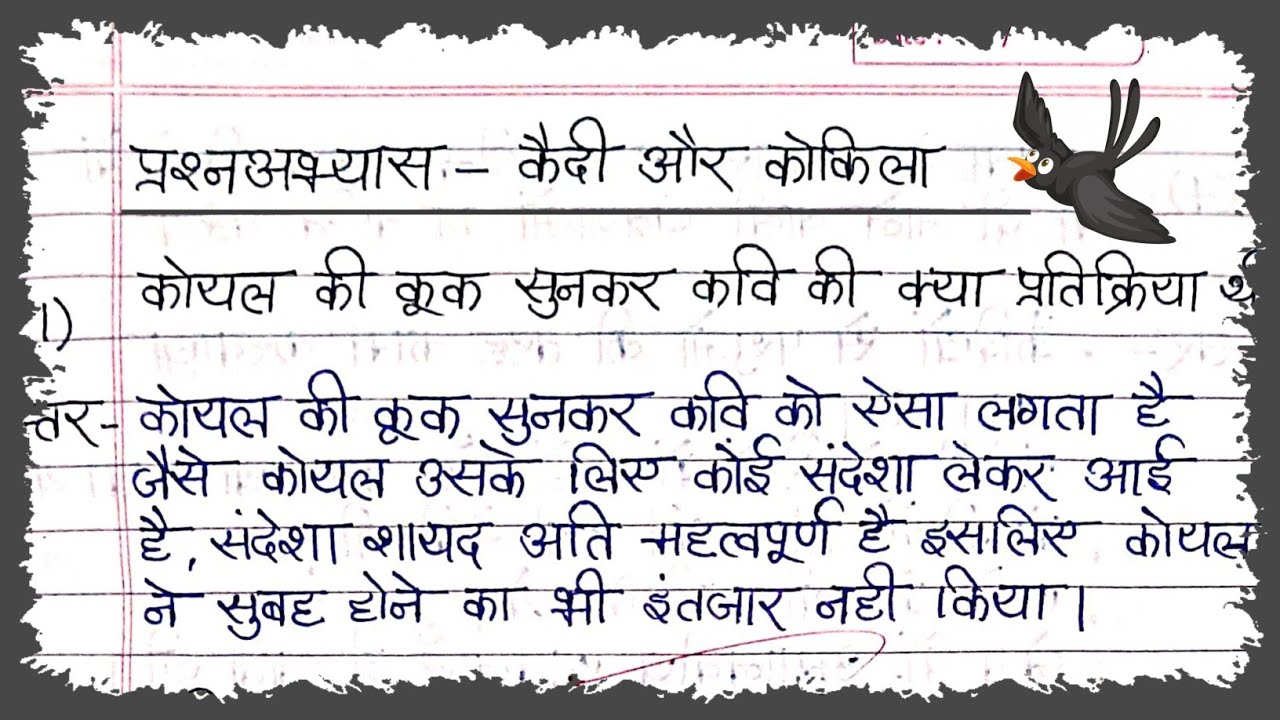 प्रश्नअभ्यास - कैदी और कोकिला
1) कोयल की कूक सुनकर कवि की क्या प्रतिक्रिया
त्तर- कोयल की कूक सुनकर कवि को ऐसा लगता है
जैसे कोयल उसके लिए कोई संदेशा लेकर आई
है, संदेशा शायद अति महत्वपूर्ण है इसलिए कोयल
ने सुबह होने का भी इंतजार नही किया।